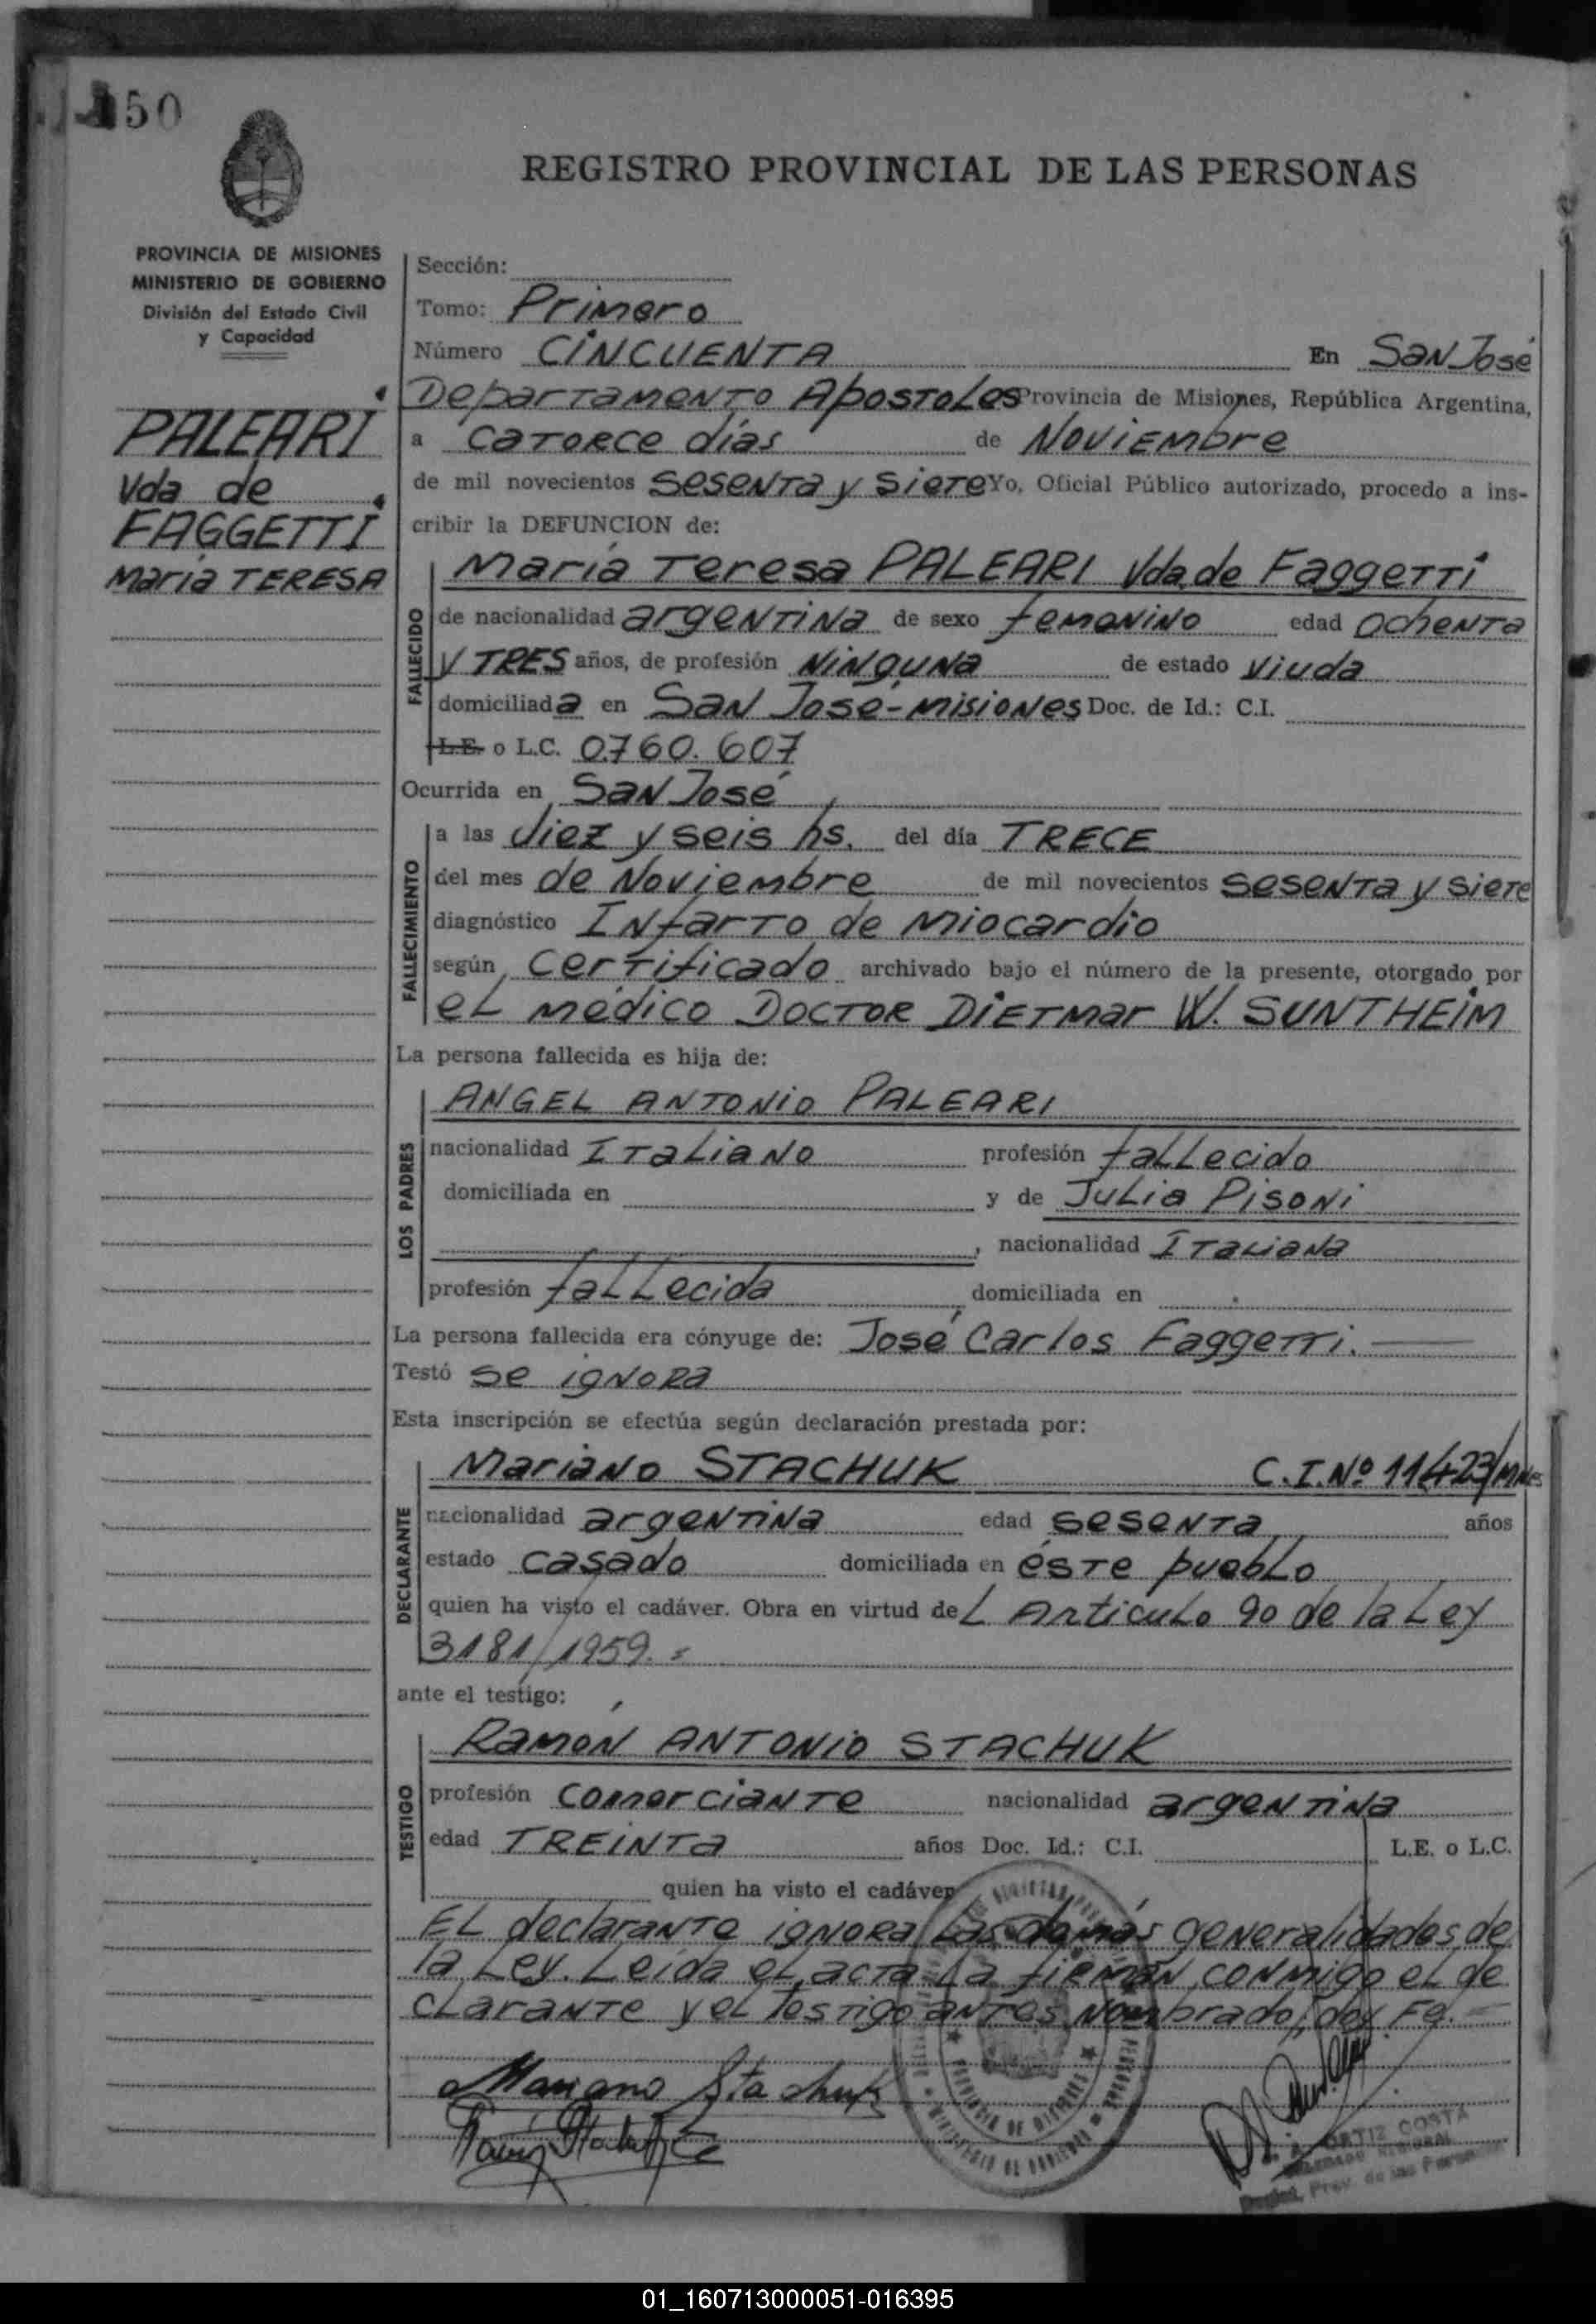 150
REGISTRO PROVINCIAL DE LAS PERSONAS
PROVINCIA DE MISIONES
MINISTERIO DE GOBIERNO
División del Estado Civil
y Capacidad
PALEARI
Vda de
FAGGETTI
Maria TERESA
Sección:
Tomo: Primero
Número CINCUENTA En San José
Departamento Apostoles Provincia de Misiones, República Argentina,
a catorce días de Noviembre
de mil novecientos sesenta y siete Yo, Oficial Público autorizado, procedo a ins-
cribir la DEFUNCION de:
María Teresa PALEARI Vda. de Faggetti
FALLECIDO
de nacionalidad argentina de sexo femenino edad ochenta
y TRES años, de profesión Ninguna de estado viuda
domiciliada en San José - Misiones Doc. de Id.: C.I.
L.E. o L.C. 0.760.607
Ocurrida en San José
FALLECIMIENTO
a las diez y seis hs. del día TRECE
del mes de Noviembre de mil novecientos sesenta y siete
diagnóstico Infarto de miocardio
según certificado archivado bajo el número de la presente, otorgado por
el médico Doctor Dietmar W. SUNTHEIM
La persona fallecida es hija de:
LOS PADRES
ANGEL ANTONIO PALEARI
nacionalidad Italiano profesión fallecido
domiciliada en y de Julia Pisoni
, nacionalidad Italiana
profesión fallecida domiciliada en
La persona fallecida era cónyuge de: José Carlos Faggetti.
Testó se ignora
Esta inscripción se efectúa según declaración prestada por:
DECLARANTE
Mariano STACHUK C.I. Nº 11.423/Mnes
nacionalidad argentina edad sesenta años
estado casado domiciliada en éste pueblo
quien ha visto el cadáver. Obra en virtud del Artículo 90 de la Ley
3181/1959.
ante el testigo:
TESTIGO
Ramón ANTONIO STACHUK
profesión comerciante nacionalidad argentina
edad TREINTA años Doc. Id.: C.I. L.E. o L.C.
quien ha visto el cadáver
El declarante ignora las demás generalidades de
la Ley. Leída el acta la firman conmigo el de
clarante y el testigo antes nombrado, doy Fe.
Mariano Stachuk
ORTIZ COSTA
Prov. de las
PROVINCIA DE MISIONES
MINISTERIO DE GOBIERNO
01_160713000051-016395